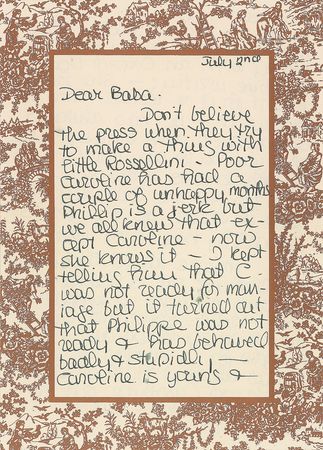 July 2nd
Dear Baba.
Don't believe
the press when they try
to make a thing with
little Rossellini - Poor
Caroline has had a
couple of unhappy months
Phillip is a jerk but
we all knew that ex-
cept Caroline - now
she knows it - I kept
telling him that C.
was not ready for mar-
iage but it turned out
that Philippe was not
ready & has behaved
badly & stupidly —
Caroline is young &